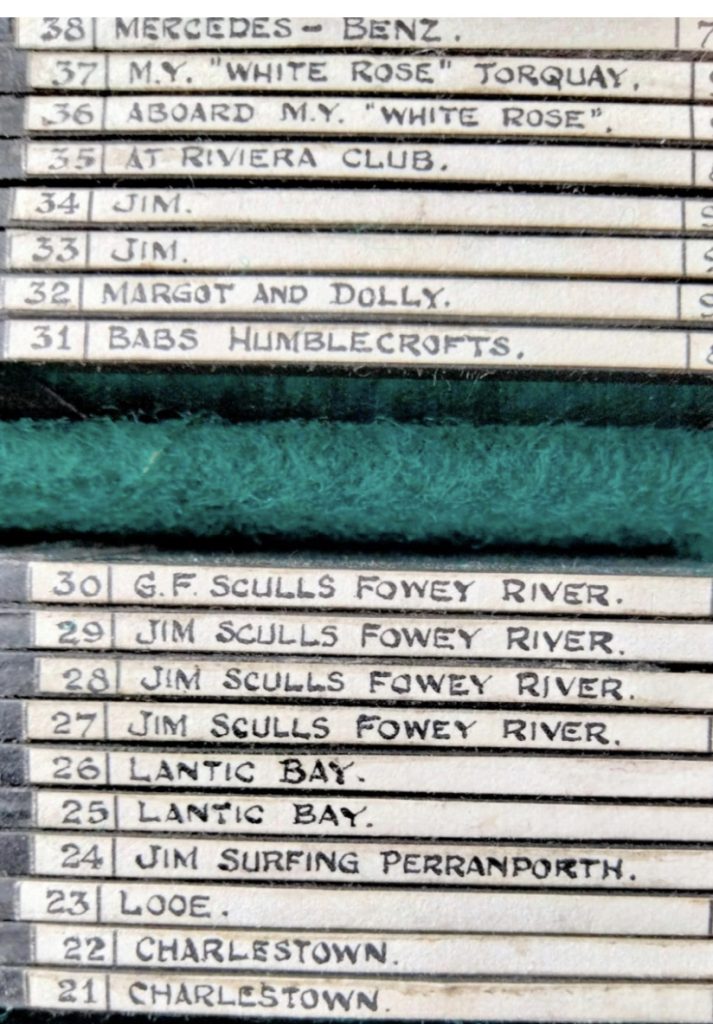 38 MERCEDES - BENZ.
37 M.Y. "WHITE ROSE" TORQUAY.
36 ABOARD M.Y. "WHITE ROSE".
35 AT RIVIERA CLUB.
34 JIM.
33 JIM.
32 MARGOT AND DOLLY.
31 BABS HUMBLECROFTS.
30 G.F. SCULLS FOWEY RIVER.
29 JIM SCULLS FOWEY RIVER.
28 JIM SCULLS FOWEY RIVER.
27 JIM SCULLS FOWEY RIVER.
26 LANTIC BAY.
25 LANTIC BAY.
24 JIM SURFING PERRANPORTH.
23 LOOE.
22 CHARLESTOWN.
21 CHARLESTOWN.